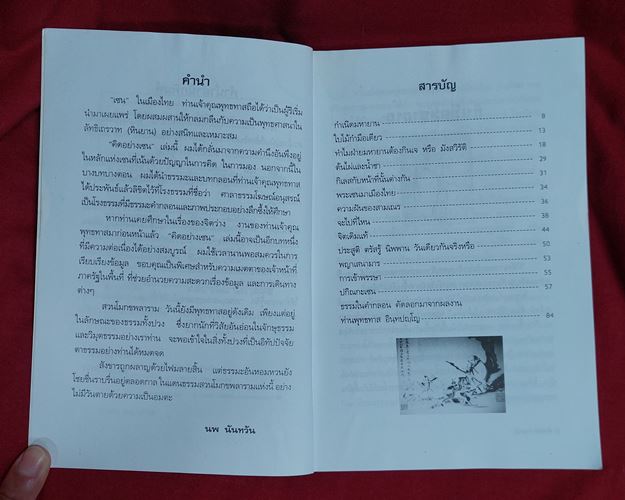 คำนำ
"เซน" ในเมืองไทย ท่านเจ้าคุณพุทธทาสถือได้ว่าเป็นผู้ริเริ่ม
นำมาเผยแพร่ โดยผสมผสานให้กลมกลืนกับความเป็นพุทธศาสนาใน
ลัทธิเถรวาท (หินยาน) อย่างสนิทและเหมาะสม
"คิดอย่างเซน" เล่มนี้ ผมได้กลั่นมาจากความคำนึงอันพึงอยู่
ในหลักแห่งเซนที่เน้นด้วยปัญญาในการคิด ในการมอง นอกจากนี้ใน
บางบทบางตอน ผมได้นำธรรมะและบทกลอนที่ท่านเจ้าคุณพุทธทาส
ได้ประพันธ์แล้วลิขิตไว้ที่โรงธรรมที่ชื่อว่า ศาลาธรรมโฆษณ์อนุสรณ์
เป็นโรงธรรมที่มีธรรมะคำกลอนและภาพประกอบอย่างลึกซึ้งให้ศึกษา
หากท่านเคยศึกษาในเรื่องของจิตว่าง งานของท่านเจ้าคุณ
พุทธทาสมาก่อนหน้าแล้ว "คิดอย่างเซน" เล่มนี้อาจเป็นอีกบทหนึ่ง
ที่มีความต่อเนื่องได้อย่างสมบูรณ์ ผมใช้เวลานานพอสมควรในการ
เรียบเรียงข้อมูล ขอบคุณเป็นพิเศษสำหรับความเมตตาของเจ้าหน้าที่
ภาครัฐในพื้นที่ ที่ช่วยอำนวยความสะดวกเรื่องข้อมูล และการเดินทาง
ต่างๆ
สวนโมกขพลาราม วันนี้ยังมีพุทธทาสอยู่ดังเดิม เพียงแต่อยู่
ในลักษณะของธรรมทั้งปวง ซึ่งยากนักที่วิสัยอันอ่อนในจักษุธรรม
และวิมุตธรรมอย่างเราท่าน จะพอเข้าใจในสิ่งทั้งปวงที่เป็นอิทัปปัจจัย
ตาธรรมอย่างท่านได้หมดจด
สังขารถูกผลาญด้วยไฟมลายสิ้น แต่ธรรมะอันหอมหวนยัง
โชยชื่นราบรื่นอยู่ตลอดกาล ในแดนธรรมสวนโมกขพลารามแห่งนี้ อย่าง
ไม่มีวันตายด้วยความเป็นอมตะ
นพ นันทวัน
สารบัญ
กำเนิดมหายาน 8
ใบไม้กำมือเดียว 13
ทำไมฝ่ายมหายานต้องกินเจ หรือ มังสวิรัติ 18
ต้นไผ่และน้ำชา 29
กิเลสกับหน้าที่นั้นต่างกัน 31
พระเซนมาเมืองไทย 34
ความฝันของสามเณร 36
จะไปที่ไหน 38
จิตเดิมแท้ 44
ประสูติ ตรัสรู้ นิพพาน วันเดียวกันจริงหรือ 50
พญาเสนามาร 53
การเข้าพรรษา 55
ปกิณกะเซน 57
ธรรมในคำกลอน คัดลอกมาจากผลงาน
ท่านพุทธทาส อินทปญฺโญ 84